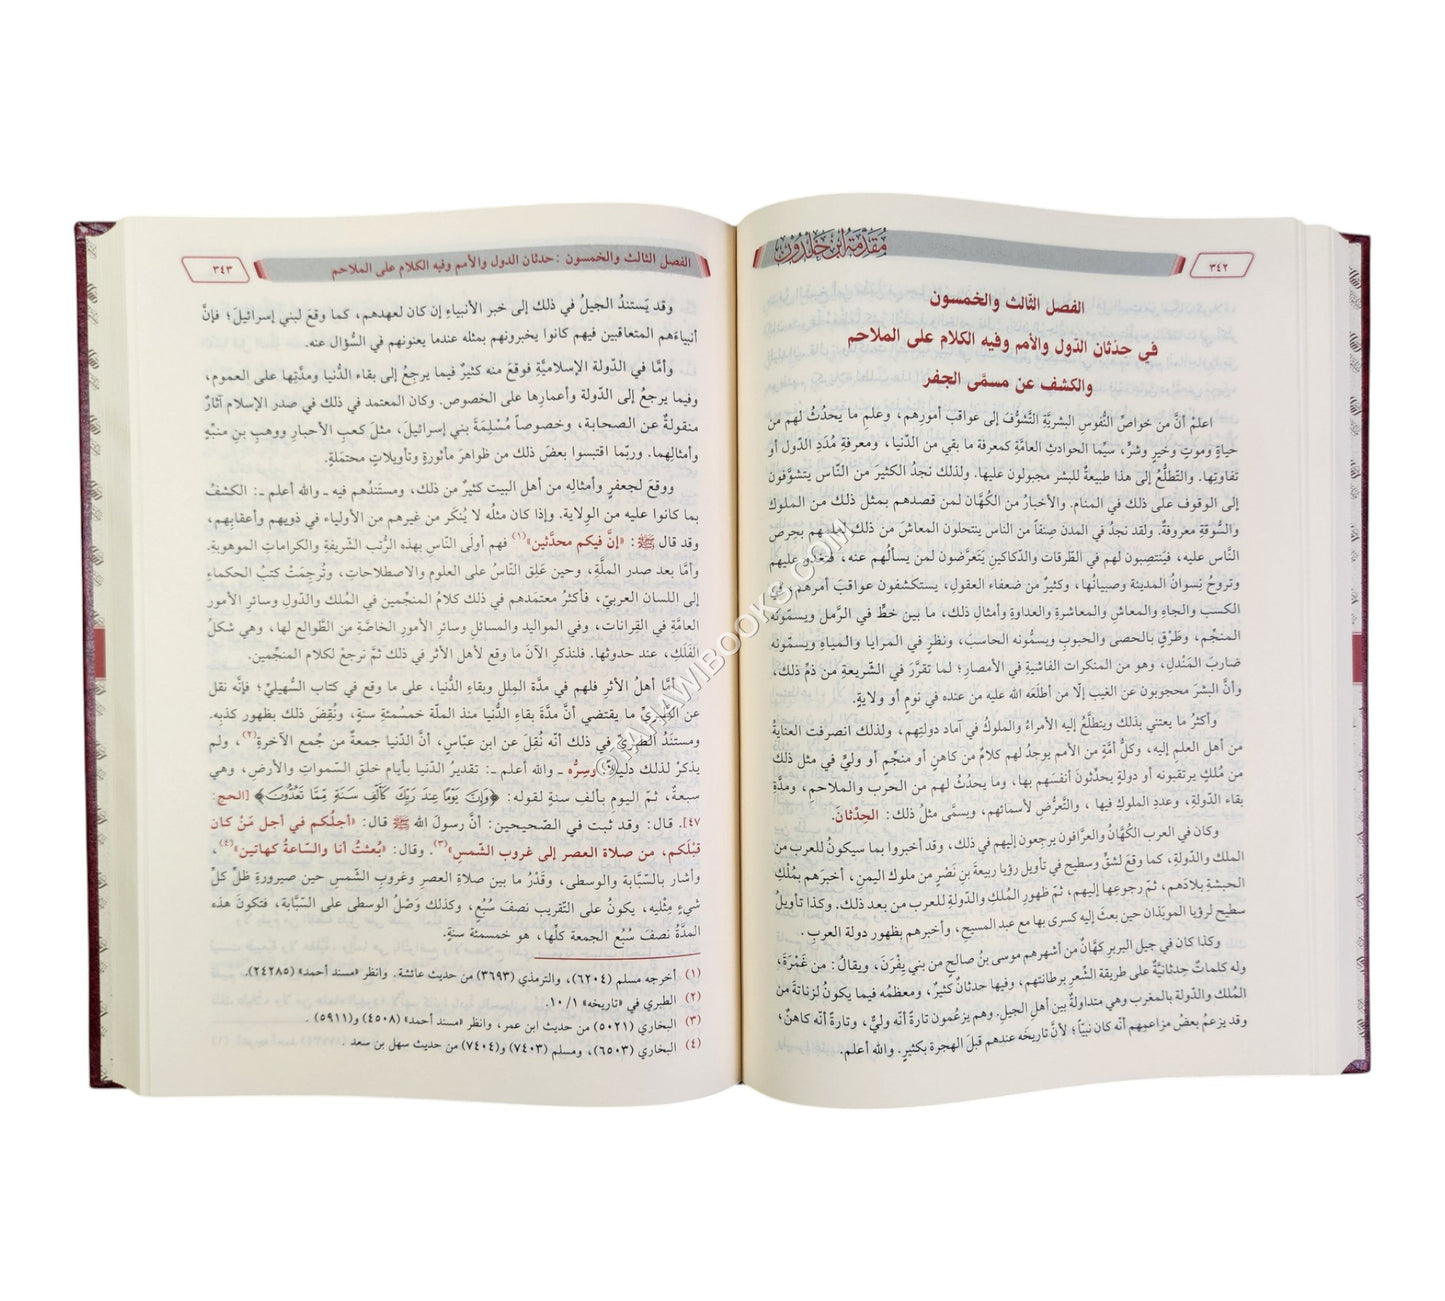 ٣٤٢
مُقَدِّمَةُ ابْنِ خَلْدُون
الفصل الثّالث والخمسون
في حِدْثان الدّول والأمم وفيه الكلام على الملاحم
والكشف عن مسمَّى الجفر
اعلمْ أنَّ من خواصِّ النُّفوسِ البشريَّةِ التَّشوُّفَ إلى عواقب أمورِهم، وعلمِ ما يحدُثُ لهم من
حياةٍ وموتٍ وخيرٍ وشرٍّ، سيَّما الحوادثِ العامَّةِ كمعرفة ما بقي من الدّنيا، ومعرفةِ مُدَدِ الدّول أو
تفاوتِها. والتّطلُّعُ إلى هذا طبيعةٌ للبشر مجبولون عليها. ولذلك نجدُ الكثيرَ من النّاس يتشوَّفون
إلى الوقوف على ذلك في المنام. والأخبارُ من الكُهَّان لمن قصدهم بمثل ذلك من الملوك
والسُّوقةِ معروفةٌ. ولقد نجدُ في المدن صِنفاً من الناس ينتحلون المعاشَ من ذلك لعلمهم بحِرصِ
النَّاس عليه، فيَنتصِبون لهم في الطّرقات والدّكاكين يَتَعرَّضون لمن يسألُهم عنه، فتغدو عليهم
وتروحُ نِسوانُ المدينة وصبيانُها، وكثيرٌ من ضعفاء العقولِ، يستكشفون عواقبَ أمرهم في
الكسب والجاهِ والمعاشِ والمعاشرةِ والعداوةِ وأمثالِ ذلك، ما بين خطٍّ في الرَّمل ويسمّونه
المنجّم، وطَرْقٍ بالحصى والحبوبِ ويسمُّونه الحاسبَ، ونظرٍ في المرايا والمياهِ ويسمّونه
ضاربَ المَنْدلِ، وهو من المنكرات الفاشيةِ في الأمصار؛ لما تقرَّرَ في الشّريعةِ من ذمِّ ذلك،
وأنَّ البشرَ محجوبون عن الغيب إلّا من أطلَعَه الله عليه من عنده في نومٍ أو ولايةٍ.
وأكثرُ ما يعتني بذلك ويتطلَّعُ إليه الأمراءُ والملوكُ في آماد دولتهم، ولذلك انصرفت العنايةُ
من أهل العلمِ إليه، وكلُّ أمَّةٍ من الأمم يوجدُ لهم كلامٌ من كاهنٍ أو منجِّمٍ أو وليٍّ في مثل ذلك
من مُلكٍ يرتقبونه أو دولةٍ يحدّثون أنفسَهم بها، وما يحدُثُ لهم من الحرب والملاحمِ، ومدَّةِ
بقاء الدّولةِ، وعددِ الملوكِ فيها، والتَّعرُّضِ لأسمائهم، ويسمَّى مثلُ ذلك: الحِدْثانَ.
وكان في العرب الكُهَّانُ والعرَّافون يرجعون إليهم في ذلك، وقد أخبروا بما سيكونُ للعرب من
الملك والدّولةِ، كما وقعَ لشقٍّ وسطيح في تأويل رؤيا ربيعةَ بنِ نَصْرٍ من ملوك اليمنِ، أخبرَهم بمُلْكِ
الحبشةِ بلادَهم، ثمّ رجوعِها إليهم، ثمّ ظهورِ المُلكِ والدّولةِ للعرب من بعد ذلك. وكذا تأويلُ
سطيح لرؤيا الموبَذان حين بعثَ إليه كسرى بها مع عبد المسيحِ، وأخبرهم بظهور دولة العربِ.
وكذا كان في جيل البربرِ كهَّانٌ من أشهرهم موسى بنُ صالحٍ من بني يفْرَنَ، ويقالُ: من غَمْرَةَ،
وله كلماتٌ حِدثانيَّةٌ على طريقة الشّعرِ برطانتهم، وفيها حدثانٌ كثيرٌ، ومعظمُه فيما يكونُ لزناتةَ من
المُلك والدّولة بالمغرب وهي متداولةٌ بين أهلِ الجيلِ. وهم يزعُمون تارةً أنّه وليٌّ، وتارةً أنّه كاهنٌ،
وقد يزعمُ بعضُ مزاعمِهم أنّه كان نبيّاً؛ لأنَّ تاريخَه عندهم قبلَ الهجرة بكثيرٍ. والله أعلم.
الفصل الثالث والخمسون: حدثان الدول والأمم وفيه الكلام على الملاحم
٣٤٣
وقد يَستندُ الجيلُ في ذلك إلى خبر الأنبياءِ إن كان لعهدهم، كما وقعَ لبني إسرائيلَ؛ فإنَّ
أنبياءَهم المتعاقبين فيهم كانوا يخبرونهم بمثله عندما يعنونهم في السُّؤال عنه.
وأمَّا في الدّولة الإسلاميَّةِ فوقعَ منه كثيرٌ فيما يرجِعُ إلى بقاء الدُّنيا ومدَّتِها على العموم،
وفيما يرجعُ إلى الدّولة وأعمارِها على الخصوص. وكان المعتمد في ذلك في صدر الإسلام آثارٌ
منقولةٌ عن الصحابة، وخصوصاً مُسْلِمَةَ بني إسرائيلَ، مثلَ كعبِ الأحبارِ ووهبِ بنِ منبِّهٍ
وأمثالِهما. وربّما اقتبسوا بعضَ ذلك من ظواهرَ مأثورةٍ وتأويلاتٍ محتملَةٍ.
ووقعَ لجعفرٍ وأمثالِه من أهل البيت كثيرٌ من ذلك، ومستَندُهم فيه ـ والله أعلم ـ: الكشفُ
بما كانوا عليه من الوِلاية. وإذا كان مثلُه لا يُنكَر من غيرهم من الأولياء في ذويهم وأعقابِهم،
وقد قال ﷺ: «إنَّ فيكم محدَّثين»(١) فهم أولَى النّاسِ بهذه الرُّتب الشّريفةِ والكراماتِ الموهوبةِ.
وأمَّا بعد صدر الملَّةِ، وحين عَلِق النّاسُ على العلوم والاصطلاحاتِ، وتُرجِمَتْ كتبُ الحكماءِ
إلى اللسان العربيّ، فأكثرُ معتمَدِهم في ذلك كلامُ المنجِّمين في المُلك والدّولِ وسائرِ الأمور
العامَّة في القِرانات، وفي المواليد والمسائلِ وسائرِ الأمورِ الخاصَّة من الطَّوالع لها، وهي شكلُ
الفَلَكِ، عند حدوثها. فلنذكرِ الآنَ ما وقع لأهل الأثر في ذلك ثمَّ نرجعُ لكلام المنجِّمين.
أمَّا أهلُ الأثرِ فلهم في مدَّة المِللِ وبقاءِ الدُّنيا، على ما وقع في كتاب السُّهيليّ؛ فإنَّه نقل
عن الطّبريّ ما يقتضي أنَّ مدَّةَ بقاءِ الدُّنيا منذ الملّة خمسُمئةِ سنةٍ، ونُقِضَ ذلك بظهور كذبِه.
ومستنَدُ الطّبريِّ في ذلك أنّه نُقِلَ عن ابن عبّاس، أنَّ الدّنيا جمعةٌ من جُمع الآخرةِ(٢)، ولم
يذكرْ لذلك دليلاً. وسِرُّه ـ والله أعلم ـ: تقديرُ الدّنيا بأيام خلقِ السّمواتِ والأرضِ، وهي
سبعةٌ، ثمّ اليوم بألف سنةٍ لقوله: ﴿وَإِنَّ يَوْمًا عِندَ رَبِّكَ كَأَلْفِ سَنَةٍ مِّمَّا تَعُدُّونَ﴾ [الحج:
٤٧]. قال: وقد ثبت في الصّحيحين: أنَّ رسولَ الله ﷺ قال: «أجلُكم في أجل مَنْ كان
قبْلَكم، من صلاة العصر إلى غروب الشّمسِ»(٣). وقال: «بُعثتُ أنا والسّاعةُ كهاتين»(٤)،
وأشار بالسّبّابة والوسطى، وقَدْرُ ما بين صلاةِ العصرِ وغروبِ الشّمسِ حين صيرورةِ ظلِّ كلِّ
شيءٍ مثْليه، يكونُ على التّقريب نصفَ سُبُعٍ، وكذلك وَصْلُ الوسطى على السّبّابة، فتكونُ هذه
المدّةُ نصفَ سُبُع الجمعة كلِّها، هو خمسمئة سنةٍ.
(١) أخرجه مسلم (٦٢٠٤)، والترمذي (٣٦٩٣) من حديث عائشة. وانظر «مسند أحمد» (٢٤٢٨٥).
(٢) الطبري في «تاريخه» ١/ ١٠.
(٣) البخاري (٥٠٢١) من حديث ابن عمر، وانظر «مسند أحمد» (٤٥٠٨) و(٥٩١١).
(٤) البخاري (٦٥٠٣)، ومسلم (٧٤٠٣) و(٧٤٠٤) من حديث سهل بن سعد.
©TAHAWIBOOKS.COM